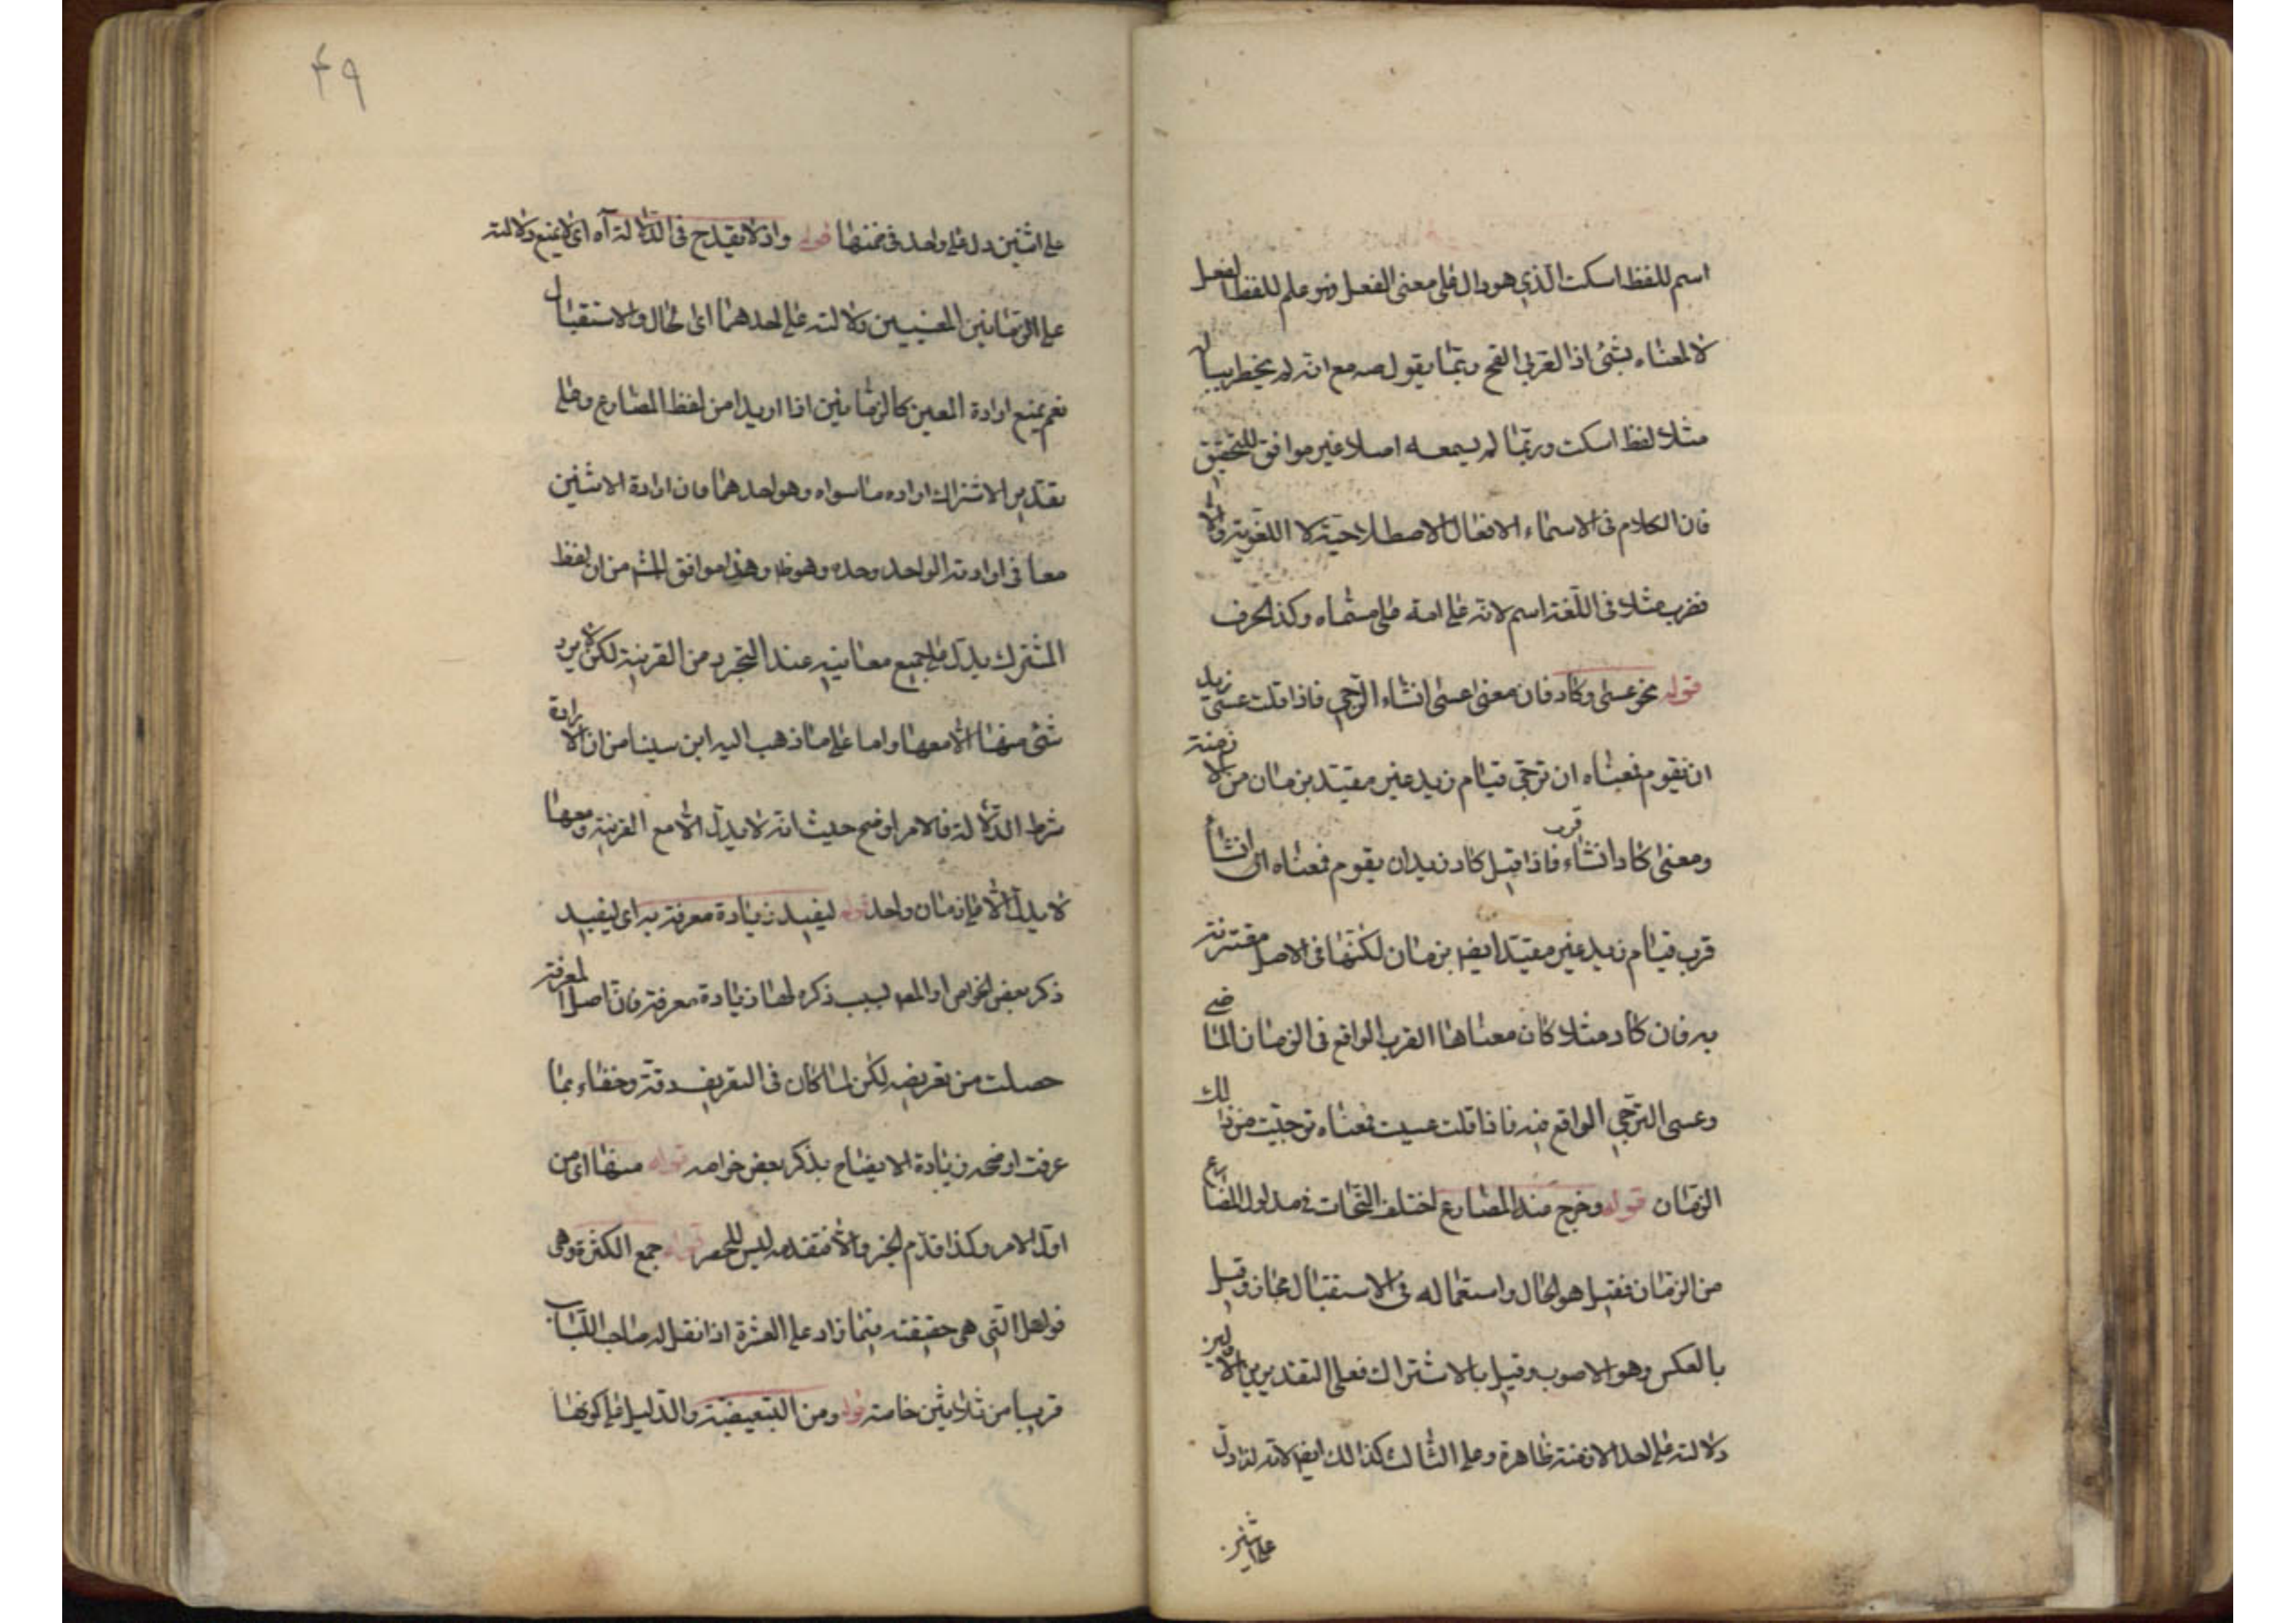 اسم للفظ اسكت الذي هو دال على معنى الفعل وهو علم للفظ الفعل
لا لمعناه بشئ اذ العربي القح ربما يقول صه مع انه لم يخطر ببال
مثلا لفظ اسكت وربما لم يسمعه اصلا غير موافق للتحقيق
فان الكلام فى الاسماء الافعال الاصطلاحية لا اللغوية والا
فضرب مثلا فى اللغة اسم لانه علامة على مسماه وكذا الحرف
قوله نحو عسى وكاد فان معنى عسى انشاء الترجي فاذا قلت عسى زيد
ان يقوم فمعناه ان ترجي قيام زيد غير مقيد بزمان من الازمنة
ومعنى كاد انشاء قرب فاذا قيل كاد زيد ان يقوم فمعناه انى انشأ
قرب قيام زيد غير مقيد ايضا بزمان لكنها فى الاصل مقترنة
به فان كاد مثلا كان معناها القرب الواقع فى الزمان الماضي
وعسى الترجي الواقع فيه فاذا قلت عسيت فمعناه ترجيت من ذلك
الزمان قوله وخرج منه المضارع اختلف النحات فى مدلول المضارع
من الزمان فقيل هو الحال واستعماله فى الاستقبال مجاز وقيل
بالعكس وهو الاصوب وقيل بالاشتراك فعلى التقديرين الاولين
دلالته على احد الازمنة ظاهرة وعلى الثالث كذالك ايضا لانه لما دل
على اثنين
٤٩
على اثنين دل على واحد فى ضمنها قوله واذ لا يقدح فى الدلالة آه اى لا يمنع دلالته
على الزمانين المعنيين دلالته على احدهما اى الحال والاستقبال
نعم يمنع ارادة المعين كالزمانين اذا اريدا من لفظ المضارع وعلى
تقدير الاشتراك اراده ما سواه وهو احدهما فان ارادة الاثنين
معا فى ارادته الواحد وحده وهو ظ وهذا موافق المشـ من ان لفظ
المشترك يدل على جميع معانيه عند التجرد من القرينة لكن لا يرد
شئ منها الا معها واما على ما ذهب اليه ابن سينا من ان الارادة
شرط الدلالة فالامر اوضح حيث انه لا يدل الا مع القرينة ومعها
لا يدل الا على زمان واحد قوله ليفيد زيادة معرفة به اى ليفيد
ذكر بعض الخواص او المصـ بسبب ذكره لها زيادة معرفة فان اصل المعرفة
حصلت من تعريفه لكن لما كان فى التعريف دقة وخفاء بما
عرفت اوضحه زيادة الايضاح بذكر بعض خواصه قوله منها اى من
اول الامر وكذا قدم الخبر والا فتقدمه ليس للحصر قوله جمع الكثرة وهى
فواعل التى هى حقيقته فيما زاد على العشرة اذ انقل له صاحب اللباب
قريبا من ثلاثين خاصة قوله ومن التبعيضية والدليل على كونها